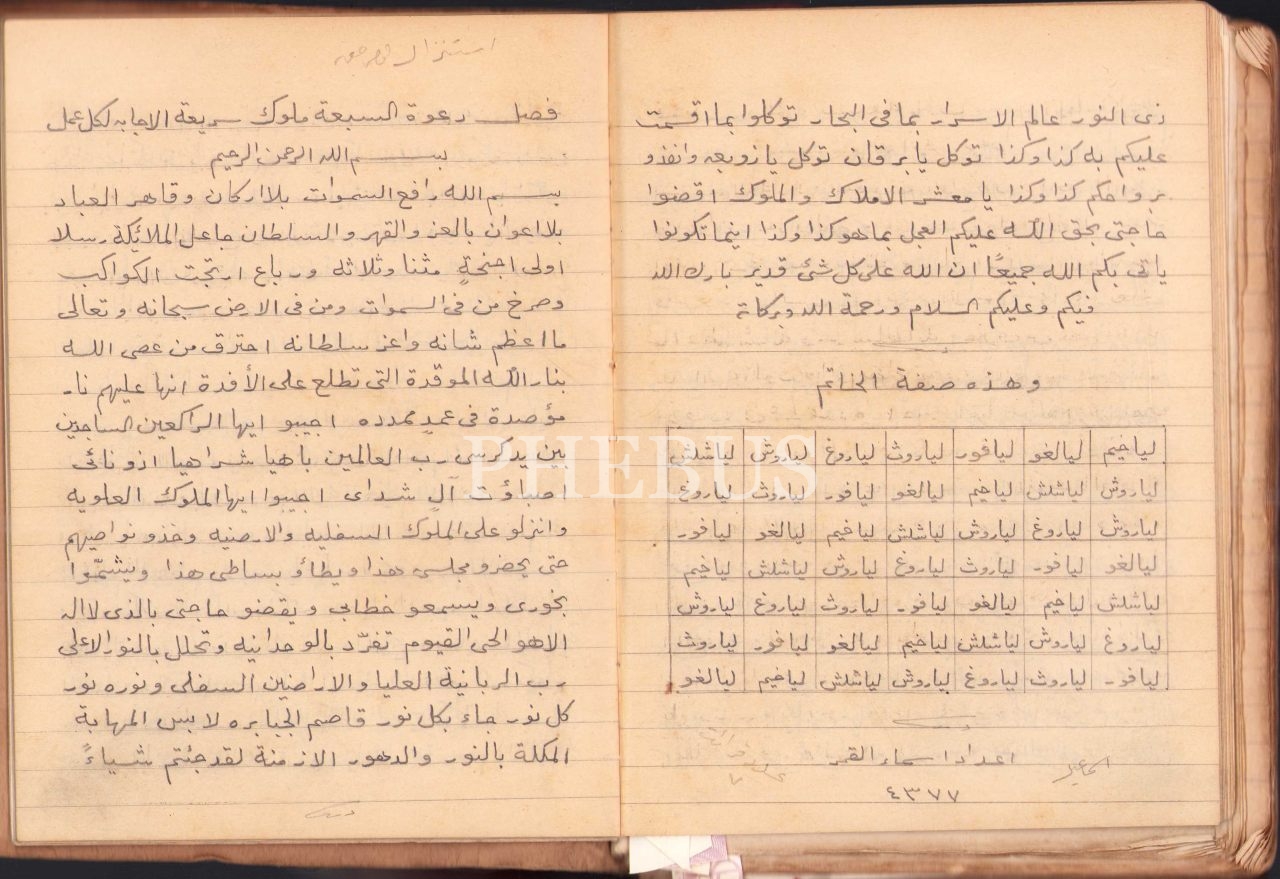 ذى النور عالم الاسرار بما فى البحار توكلوا بما اقسمت
عليكم به كذا وكذا توكل يا برقان توكل يا زوبعه وانفذو
برواحكم كذا وكذا يا معشر الاملاك والملوك اقضوا
حاجتى بحق الله عليكم العجل بما هو كذا وكذا اينما تكونوا
ياتى بكم الله جميعًا ان الله على كل شئ قدير بارك الله
فيكم وعليكم السلام ورحمة الله وبركاتة
وهذه صفة الخاتم
لياخيم ليالغو ليافور لياروث لياروغ لياروش لياشلش
لياروش لياشلش لياخيم ليالغو ليافور لياروث لياروغ
لياروث لياروغ لياروش لياشلش لياخيم ليالغو ليافور
ليالغو ليافور لياروث لياروغ لياروش لياشلش لياخيم
لياشلش لياخيم ليالغو ليافور لياروث لياروغ لياروش
لياروغ لياروش لياشلش لياخيم ليالغو ليافور لياروث
ليافور لياروث لياروغ لياروش لياشلش لياخيم ليالغو
اعداد اسماء القمر
٤٣٧٧
استنزال
فصل دعوة السبعة ملوك سريعة الاجابه لكل عمل
بسم الله الرحمن الرحيم
بسم الله رافع السموات بلا اركان وقاهر العباد
بلا اعوان بالعز والقهر والسلطان جاعل الملائكة رسلا
اولى اجنحةٍ مثنا وثلاثه ورباع ارتجت الكواكب
وصرخ من فى السموات ومن فى الارض سبحانه وتعالى
ما اعظم شانه واعز سلطانه احترق من عصى الله
بنار الله الموقدة التى تطلع على الأفدة انها عليهم نار
مؤصدة فى عمدٍ ممدده اجيبو ايها الراكعين الساجدين
بين يد كرسى رب العالمين باهيا شراهيا ازونائى
اصباؤت آلٍ شداى اجيبوا ايها الملوك العلويه
وانزلو على الملوك السفليه والارضيه وخذو نواصيهم
حتى يحضرو مجلسى هذا ويطاؤ بساطى هذا ويشتمّوا
بخورى ويسمعو خطابى ويقضو حاجتى بالذى لا اله
الا هو الحى القيوم تفرّد بالوحدانيه وتجلل بالنور الاعلى
رب الربانية العليا والاراضين السفلى ونوره نور
كل نور جاء بكل نور قاصم الجبابره لا بس المهابة
المكلة بالنور والدهور الازمنة لقد جئتم شياءً
PHEBUS